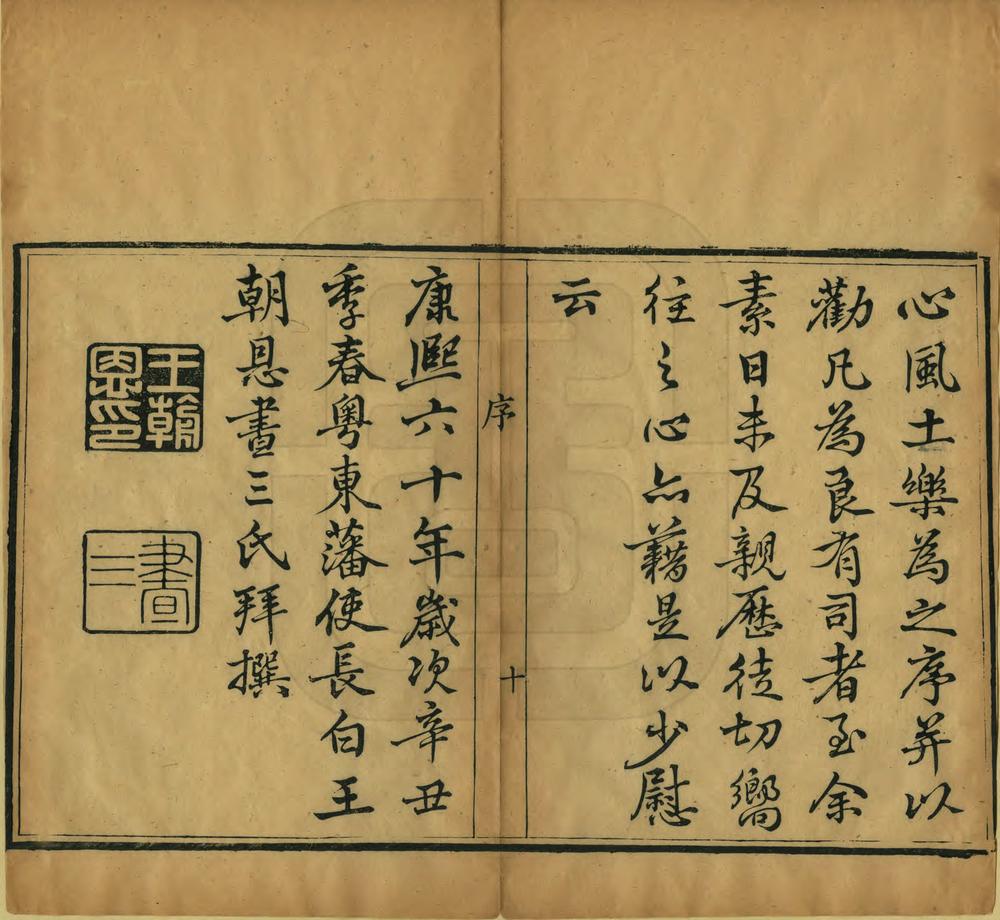 心風土樂為之序并以
勸凡為良有司者至余
素日未及親歷徒切嚮
往之心亦藉是以少慰
云
序
十
康熙六十年歲次辛丑
季春粵東藩使長白王
朝恩晝三氏拜撰
王朝恩印
晝三